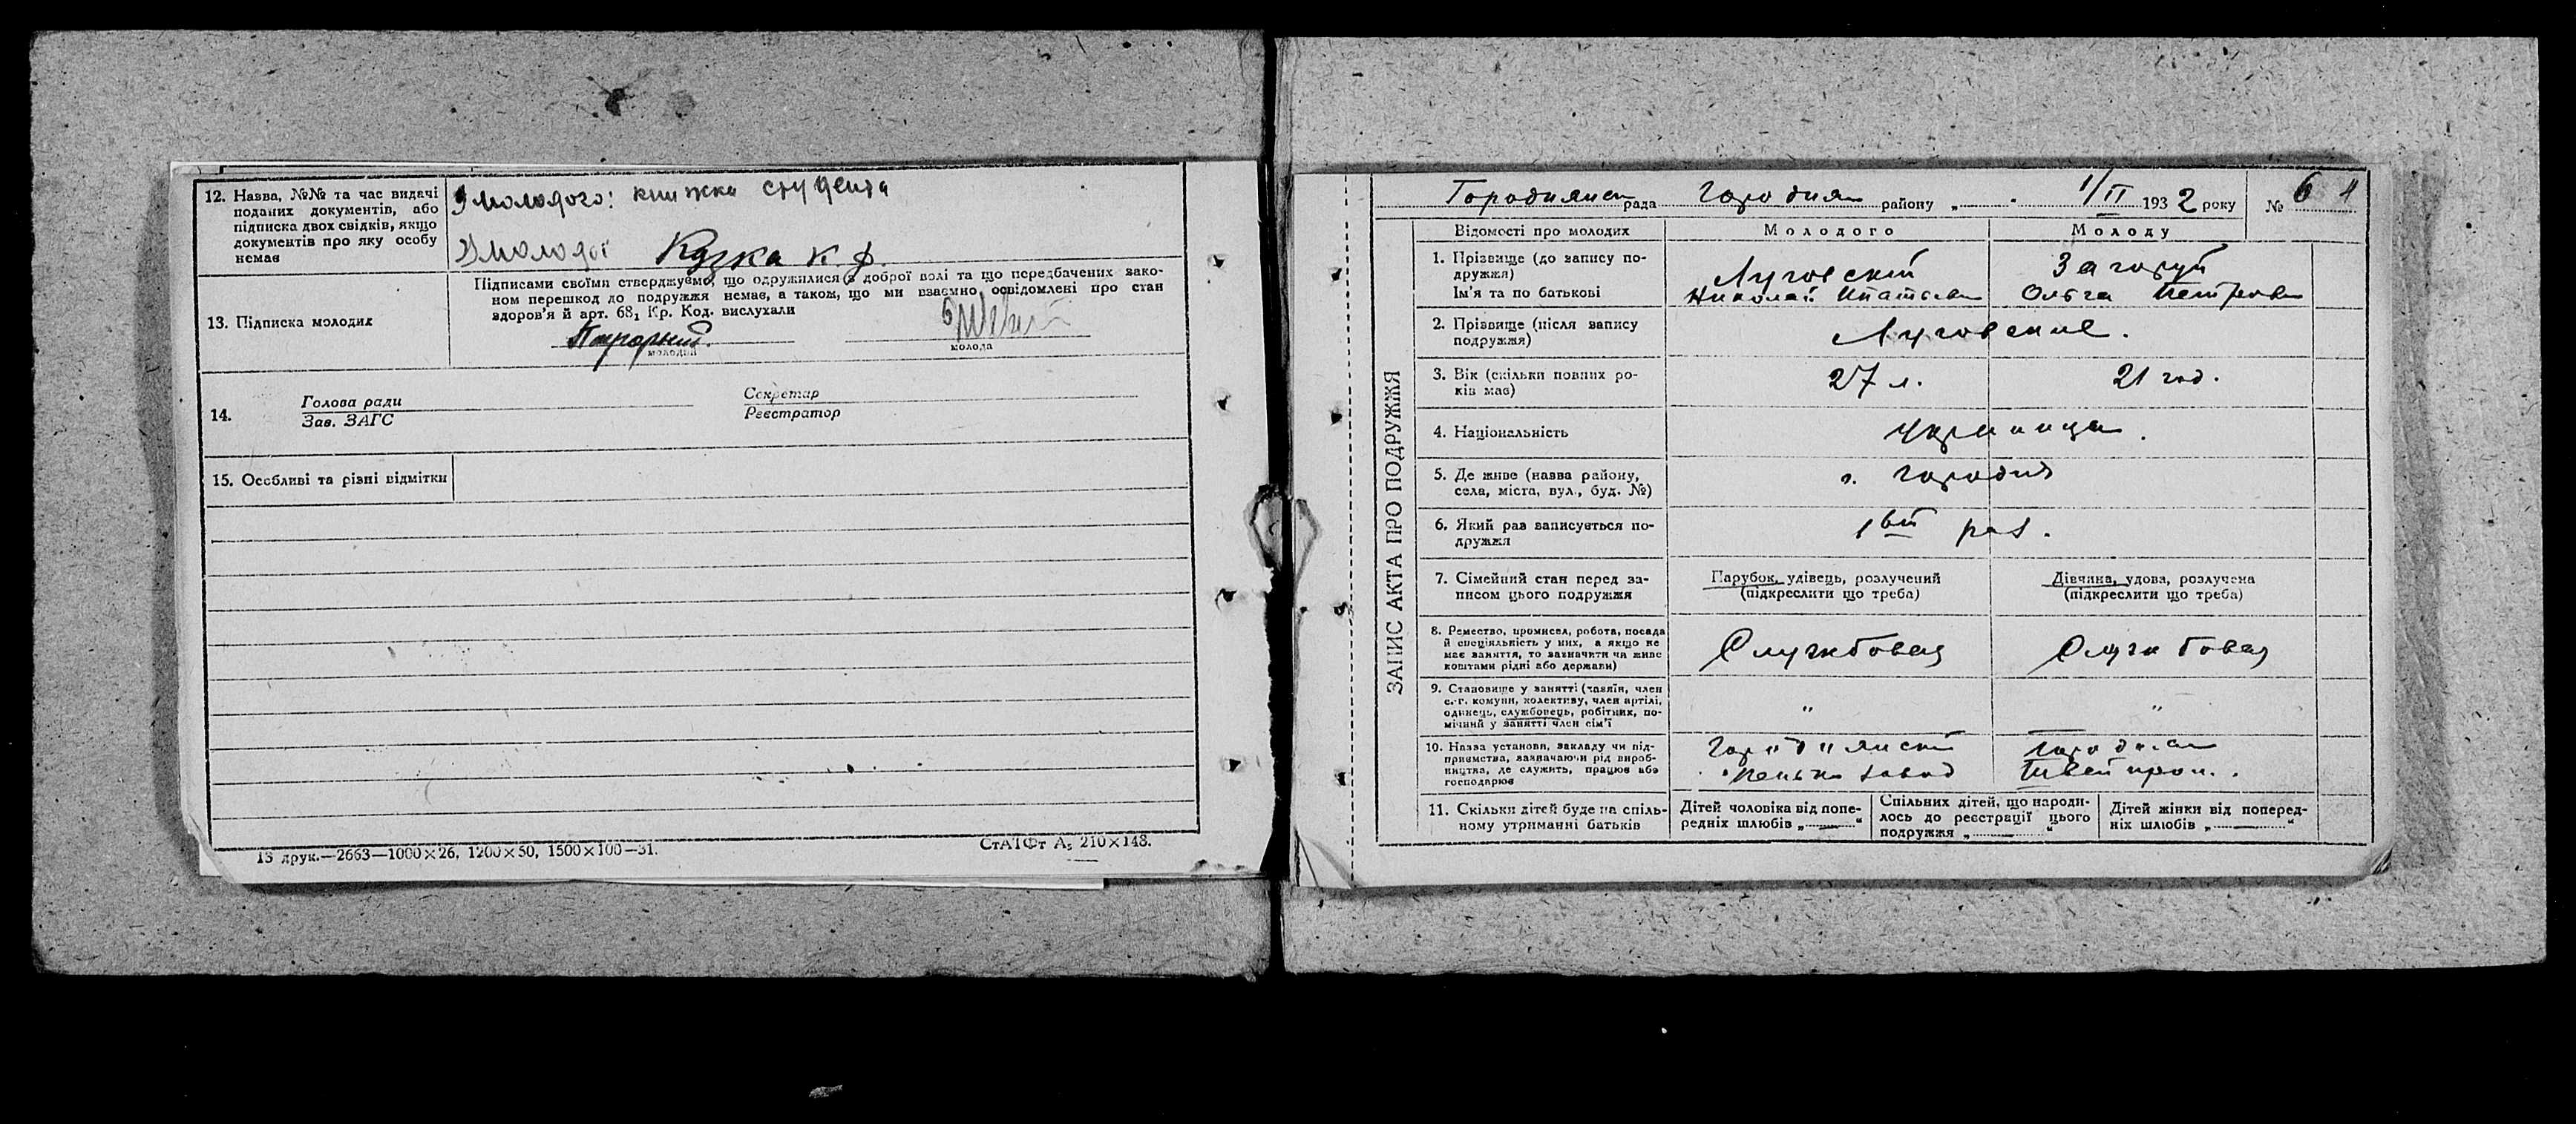 12. Назва, №№ та час видачі
поданих документів, або
підписка двох свідків, якщо
документів про яку особу
немає
У молодого: книжка студента
У молодої
13. Підписка молодих
Підписами своїми стверджуємо, що одружилися з доброї волі та що передбачених зако-
ном перешкод до подружжя немає, а також, що ми взаємно освідомлені про стан
здоров'я й арт. 68₁ Кр. Код. вислухали
молодий
молода
14.
Голова ради
Зав. ЗАГС
Секретар
Реєстратор
15. Особливі та різні відмітки
13 друк.—2663—1000×26, 1200×50, 1500×100—31.
СтАТФт А₅ 210×148.
ЗАПИС АКТА ПРО ПОДРУЖЖЯ
Городнянск рада Городня району „ . 1/II 1932 року № 6
Відомості про молодих
Молодого
Молоду
1. Прізвище (до запису по-
дружжя)
Ім'я та по батькові
Луговский
Николай Ипатьев
Загоруй
Ольга Петровн
2. Прізвище (після запису
подружжя)
Луговские.
3. Вік (скільки повних ро-
ків має)
27 л.
21 год.
4. Національність
украинцы.
5. Де живе (назва району,
села, міста, вул., буд. №)
г. Городня
6. Який раз записується по-
дружжя
1ый раз.
7. Сімейний стан перед за-
писом цього подружжя
Парубок, удівець, розлучений
(підкреслити що треба)
Дівчина, удова, розлучена
(підкреслити що треба)
8. Ремество, промисел, робота, посада
й спеціяльність у них, а якщо не
має заняття, то зазначити чи живе
коштами рідні або держави)
Службовец
Службовец
9. Становище у занятті (хазяїн, член
с.-г. комуни, колективу, член артілі,
одинець, службовець, робітник, по-
мічний у занятті член сім'ї
"
"
10. Назва установи, закладу чи під-
приємства, зазначаючи рід вироб-
ництва, де служить, працює або
господарює
Городнянский
Пенько завод
Швейпром.
11. Скільки дітей буде на спіль-
ному утриманні батьків
Дітей чоловіка від попе-
редніх шлюбів „ — “
Спільних дітей, що народи-
лось до реєстрації цього
подружжя „ “
Дітей жінки від поперед-
ніх шлюбів „ — “